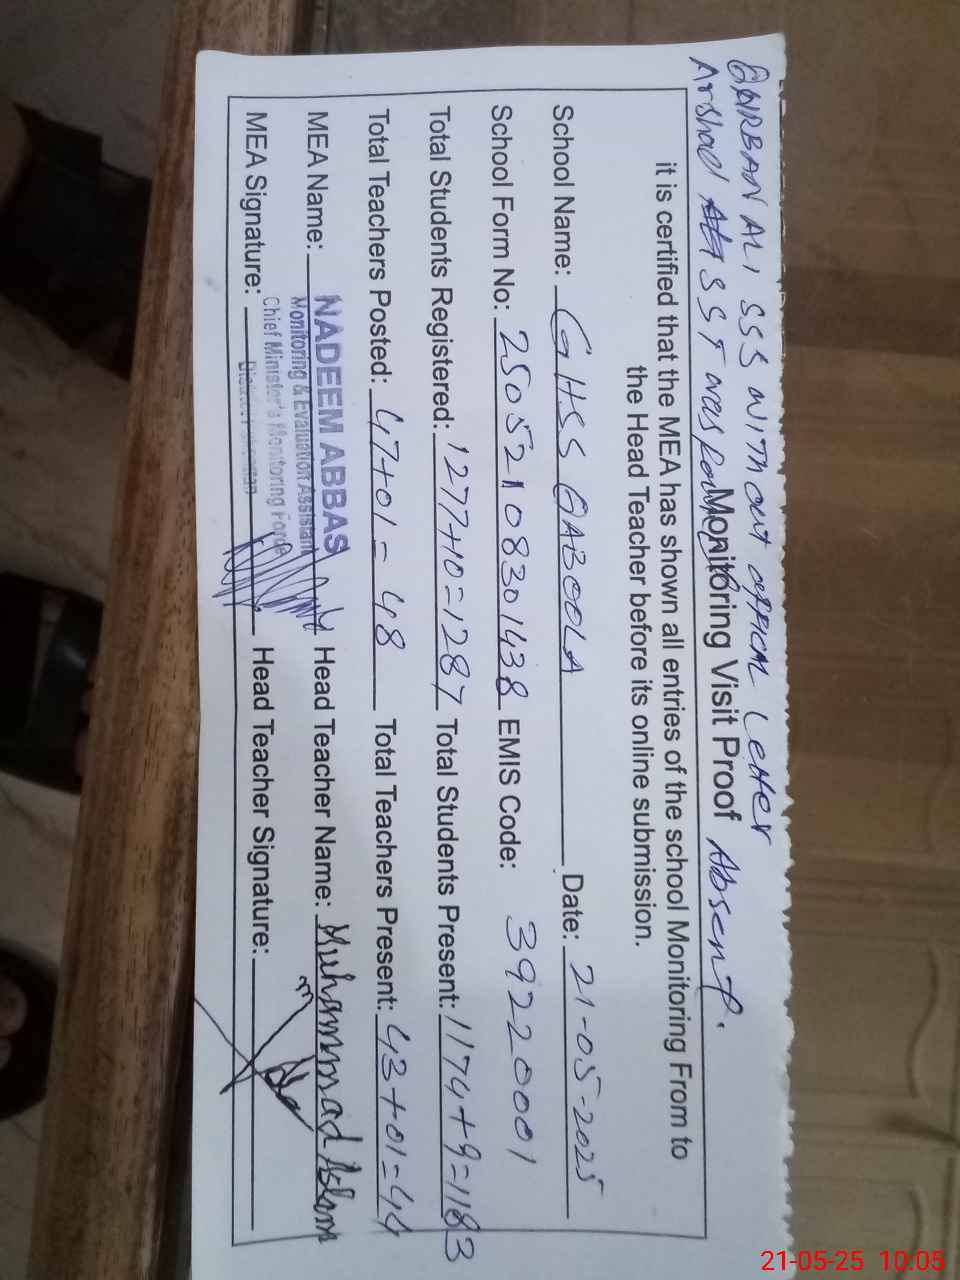 QURBAN ALI SSS WITH out offical Letter
Arshad SST was found Absent.
Monitoring Visit Proof
it is certified that the MEA has shown all entries of the school Monitoring From to
the Head Teacher before its online submission.
School Name: GHSS QABOOLA Date: 21-05-2025
School Form No: 25052108301438 EMIS Code: 39220001
Total Students Registered: 1277+10=1287 Total Students Present: 1174+9=1183
Total Teachers Posted: 47+01=48 Total Teachers Present: 43+01=44
MEA Name: NADEEM ABBAS Head Teacher Name: Muhammad Aslam
Monitoring & Evaluation Assistant
Chief Minister's Monitoring Force
MEA Signature: District Head Teacher Signature:
21-05-25 10.05